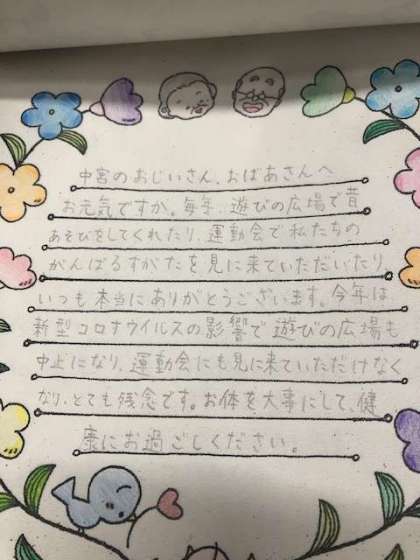 中宮のおじいさん、おばあさんへ
お元気ですか。毎年、遊びの広場で昔
あそびをしてくれたり、運動会で私たちの
がんばるすがたを見に来ていただいたり
いつも本当にありがとうございます。今年は
新型コロナウイルスの影響で遊びの広場も
中止になり、運動会にも見に来ていただけなく
なり、とても残念です。お体を大事にして、健
康にお過ごしください。